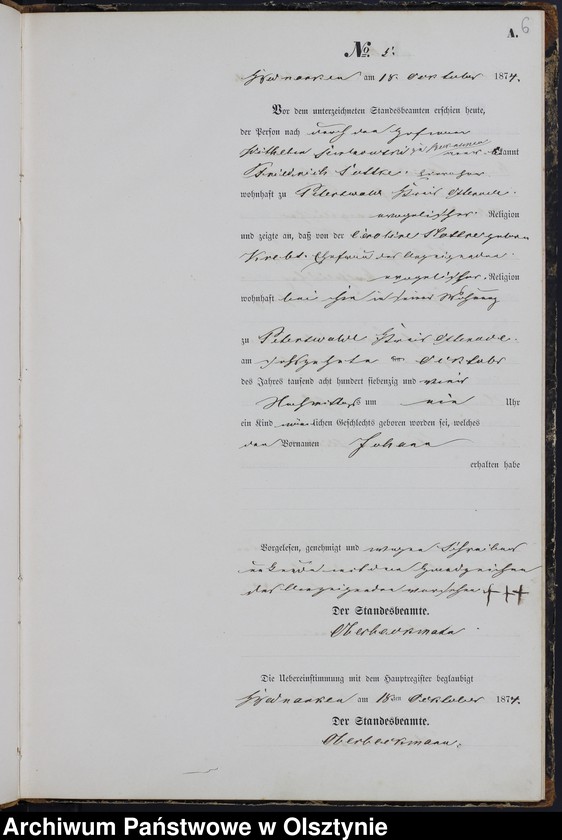 6
A.
No. 5.
am 18. October 1874.
Vor dem unterzeichneten Standesbeamten erschien heute,
der Person nach durch den
Wilhelm kannt
Friedrich
wohnhaft zu Peterswalde Kreis Osterode.
evangelischer Religion
und zeigte an, daß von der Caroline geboren
Ehefrau des Anzeigenden
evangelischer Religion
wohnhaft bei ihm in seiner Wohnung
zu Peterswalde Kreis Osterode.
am October
des Jahres tausend acht hundert siebenzig und vier
Nachmittags um ein Uhr
ein Kind männlichen Geschlechts geboren worden sei, welches
den Vornamen Johann
erhalten habe
Vorgelesen, genehmigt und wegen Schreibens
unkunde mit den Handzeichen
des Anzeigenden versehen +++
Der Standesbeamte.
Oberbeckmann
Die Uebereinstimmung mit dem Hauptregister beglaubigt
am 18ten October 1874.
Der Standesbeamte.
Oberbeckmann.
Archiwum Państwowe w Olsztynie